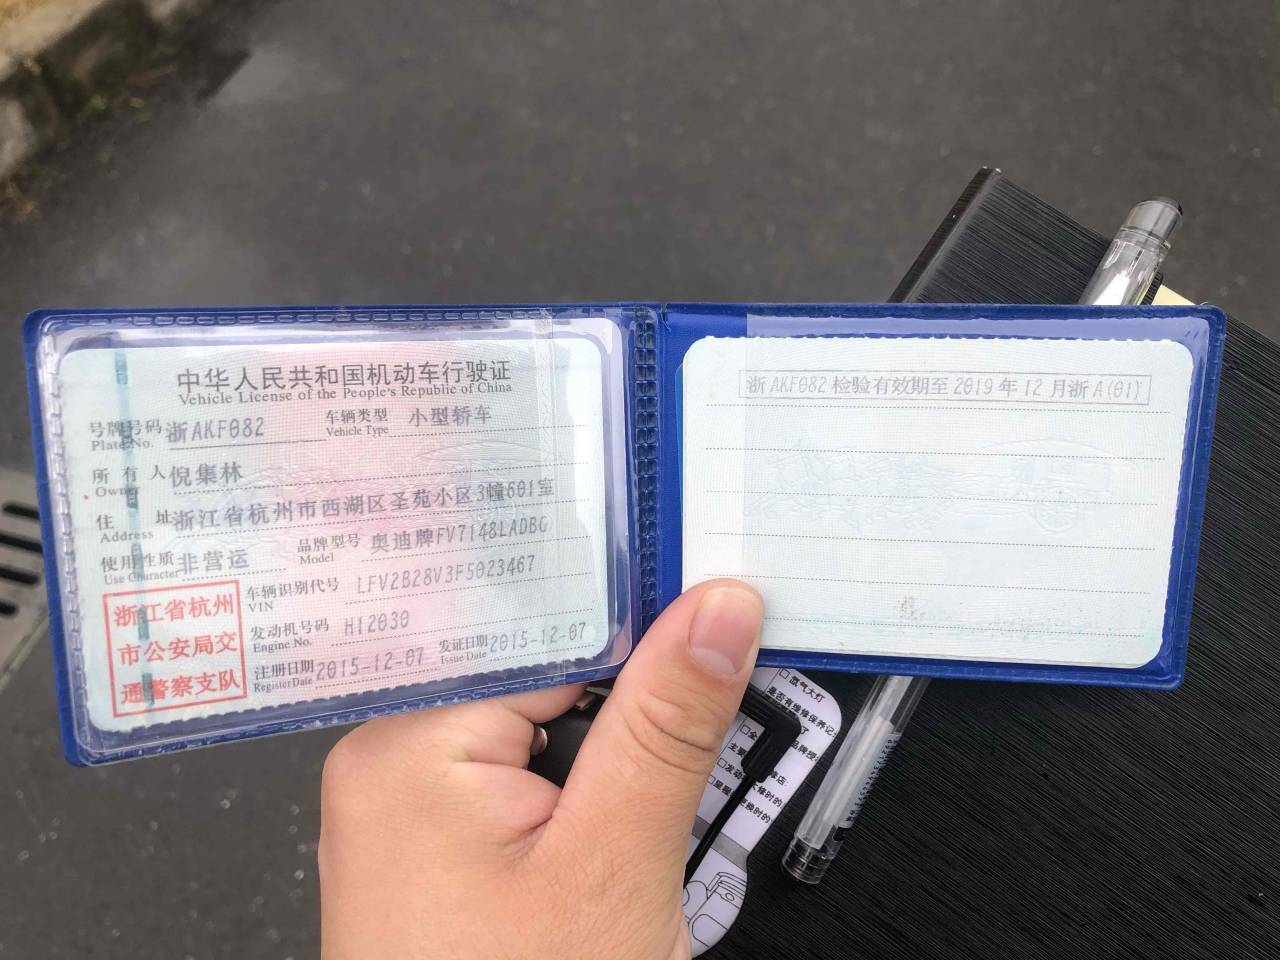 中华人民共和国机动车行驶证
Vehicle License of the People's Republic of China
号牌号码 浙AKF082 车辆类型 小型轿车
Plate No. Vehicle Type
所有人 倪集林
Owner
住址 浙江省杭州市西湖区圣苑小区3幢601室
Address
使用性质 非营运 品牌型号 奥迪牌FV7148LADBG
Use Character Model
浙江省杭州
市公安局交
通警察支队
车辆识别代号 LFV2B28V3F5023467
VIN
发动机号码 H12030
Engine No.
注册日期 2015-12-07 发证日期 2015-12-07
Register Date Issue Date
浙AKF082 检验有效期至 2019 年 12 月浙A(01)
□氙气大灯
是否有维修保养记
□全
品牌授
主要
店:
□发动
大修时的
□里程
更换时的